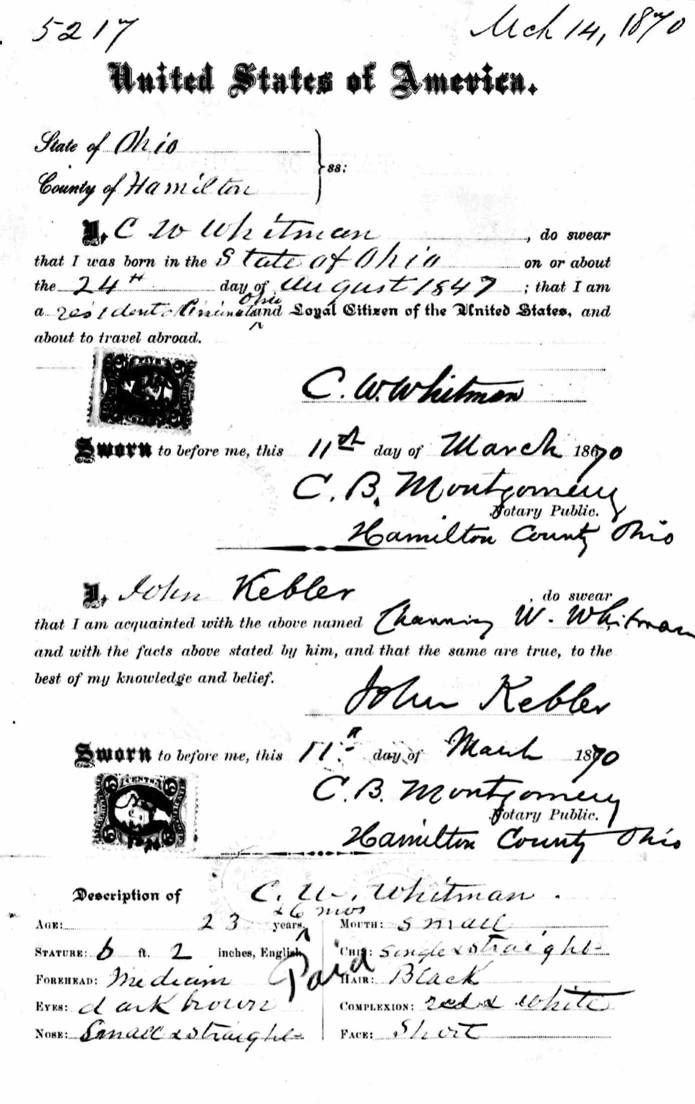 5217 Mch 14, 1870
United States of America.
State of Ohio
ss:
County of Hamilton
I, C W Whitman, do swear
that I was born in the State of Ohio on or about
the 24th day of August 1847; that I am
Ohio
a resident Cincinnati and Loyal Citizen of the United States, and
about to travel abroad.
C. W. Whitman
Sworn to before me, this 11th day of March 1870
C. B. Montgomery
Notary Public.
Hamilton County Ohio
I, John Kebler, do swear
that I am acquainted with the above named Channing W. Whitman
and with the facts above stated by him, and that the same are true, to the
best of my knowledge and belief.
John Kebler
Sworn to before me, this 11th day of March 1870
C. B. Montgomery
Notary Public.
Hamilton County Ohio
Description of C. W. Whitman.
&6 mos
Age: 23 years, Mouth: Small
Stature: 6 ft. 2 inches, English Chin: Single & straight
Paid
Forehead: Medium Hair: Black
Eyes: dark brown Complexion: red & white
Nose: Small & straight Face: Short